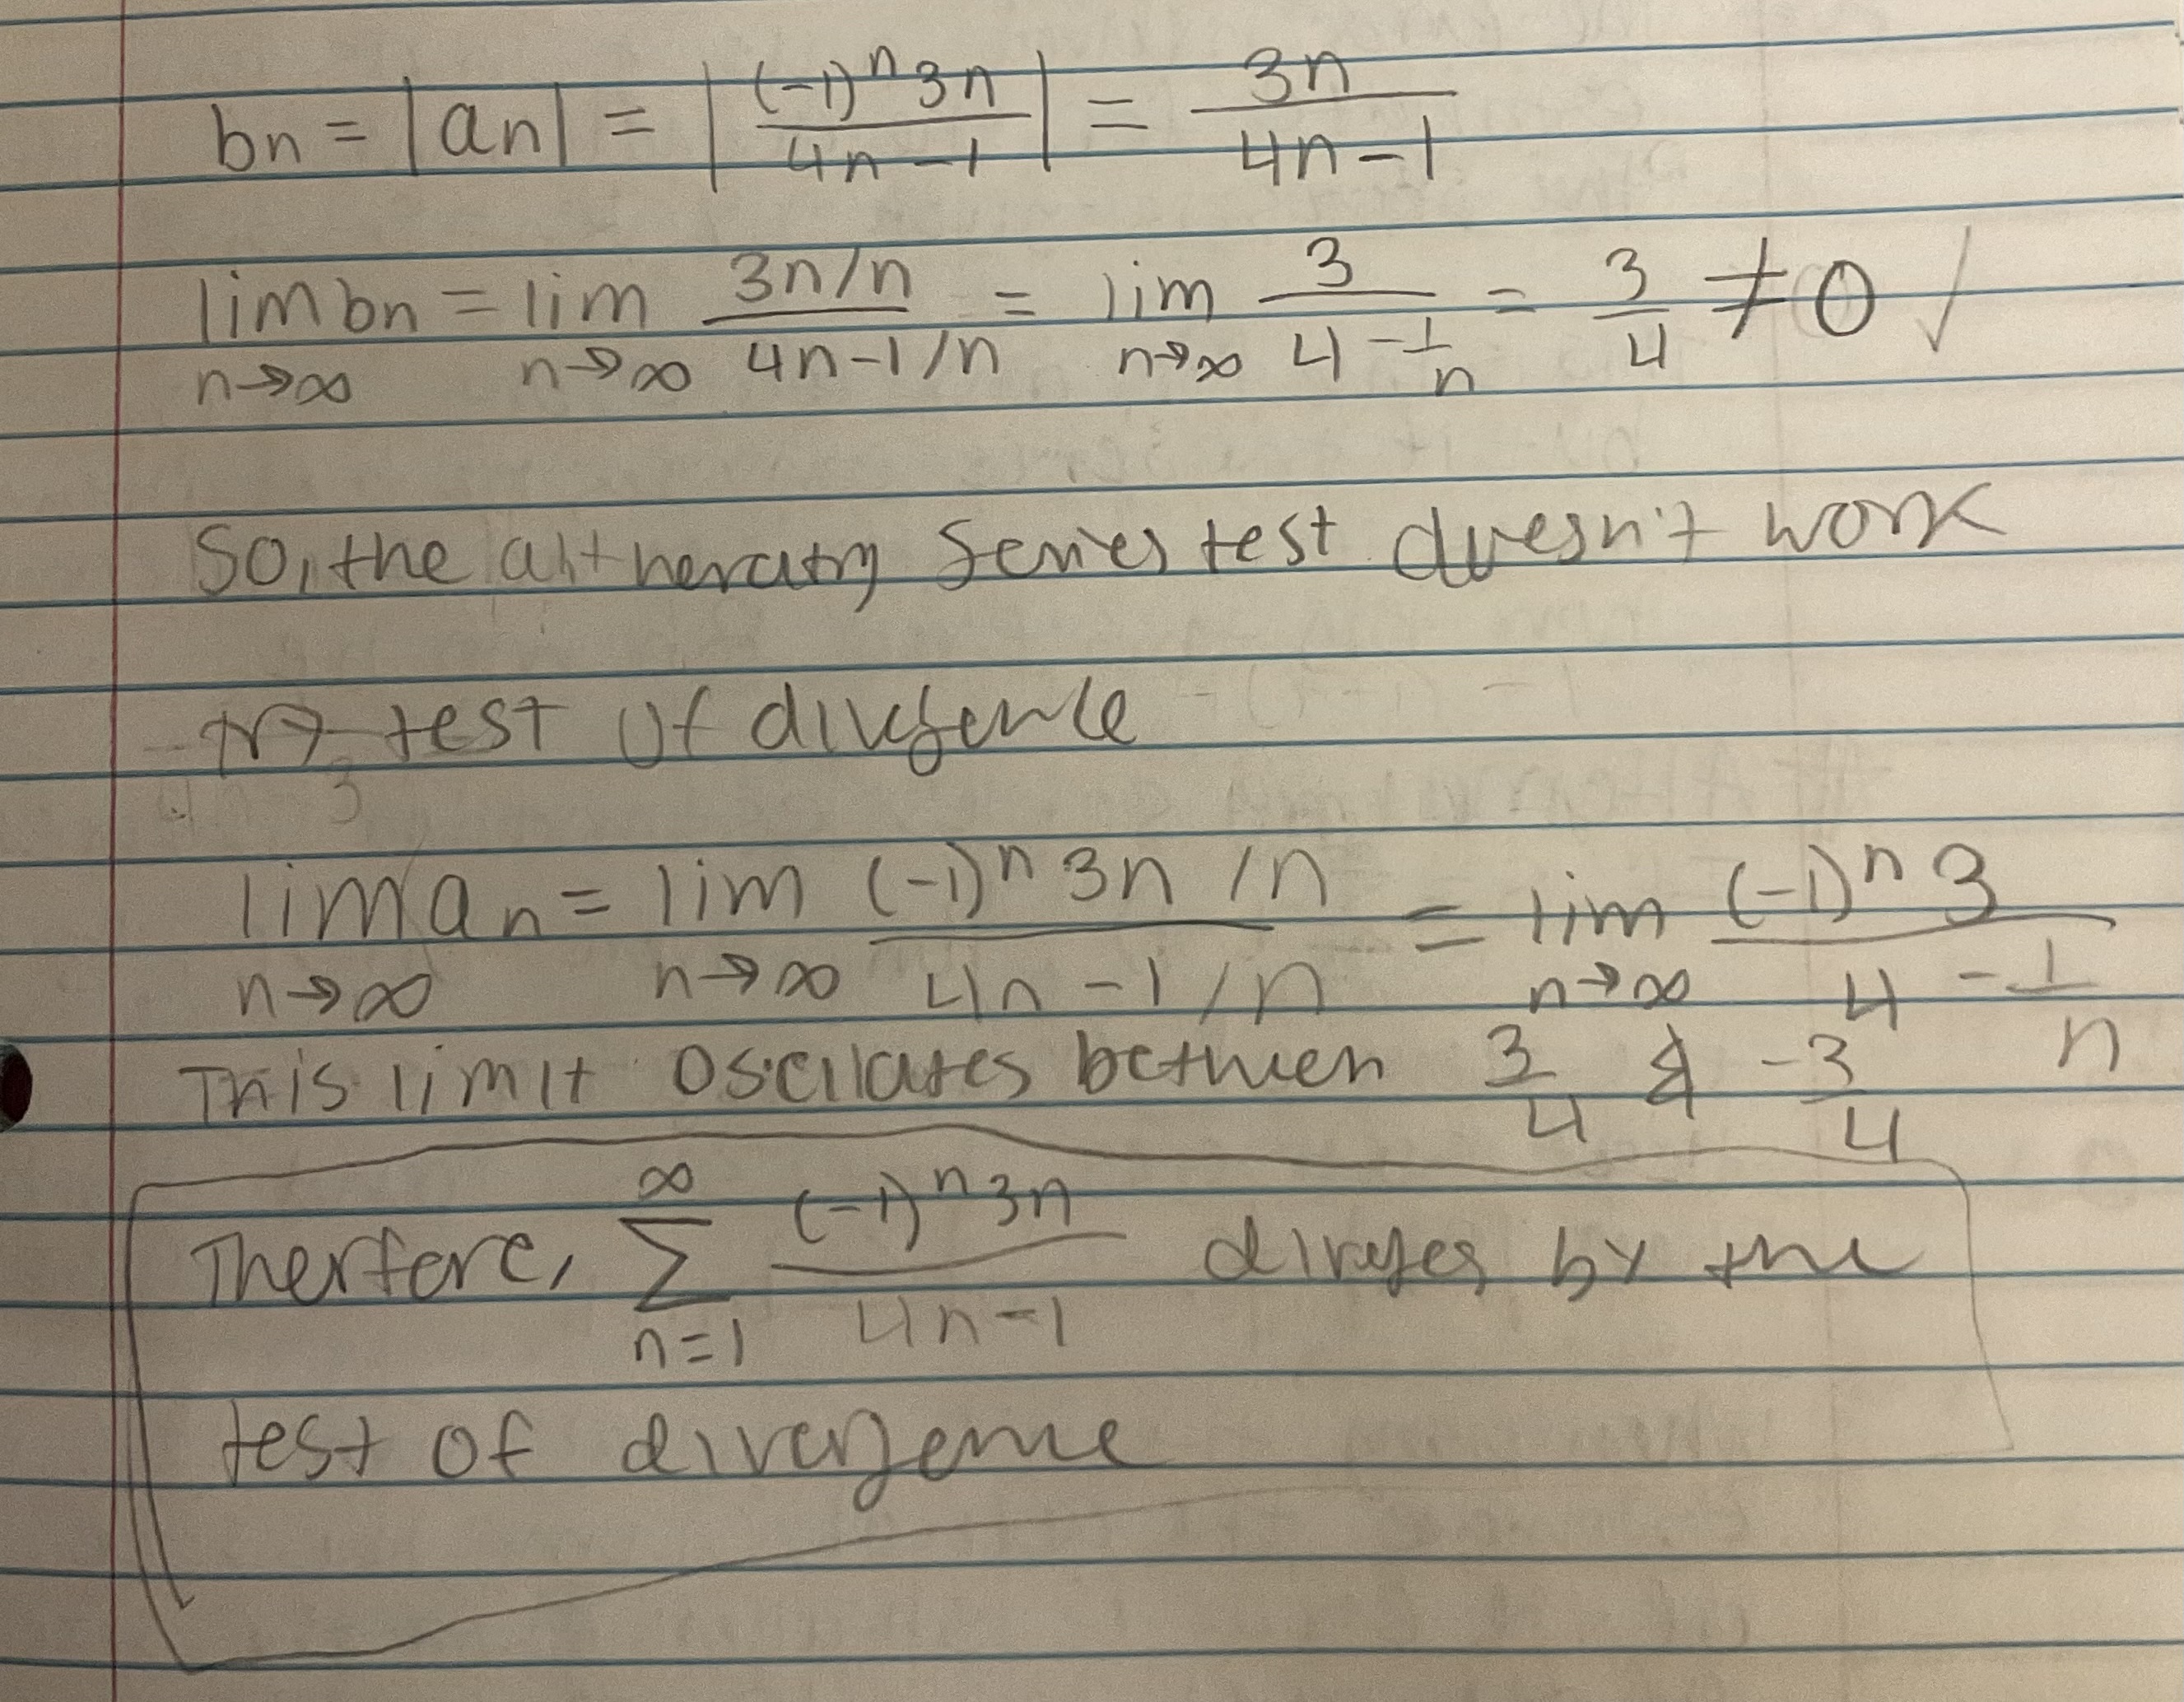 bn = |an| = |(-1)^n 3n / 4n-1| = 3n / 4n-1
lim n→∞ bn = lim n→∞ (3n/n) / (4n-1/n) = lim n→∞ 3 / (4 - 1/n) = 3/4 ≠ 0 ✓
So, the altnerating Series test doesn't work
try test of divergence
lim n→∞ an = lim n→∞ ((-1)^n 3n /n) / (4n-1/n) = lim n→∞ (-1)^n 3 / (4 - 1/n)
This limit oscilates between 3/4 & -3/4
Therfore, ∞ Σ n=1 (-1)^n 3n / 4n-1 diverges by the
test of divergence